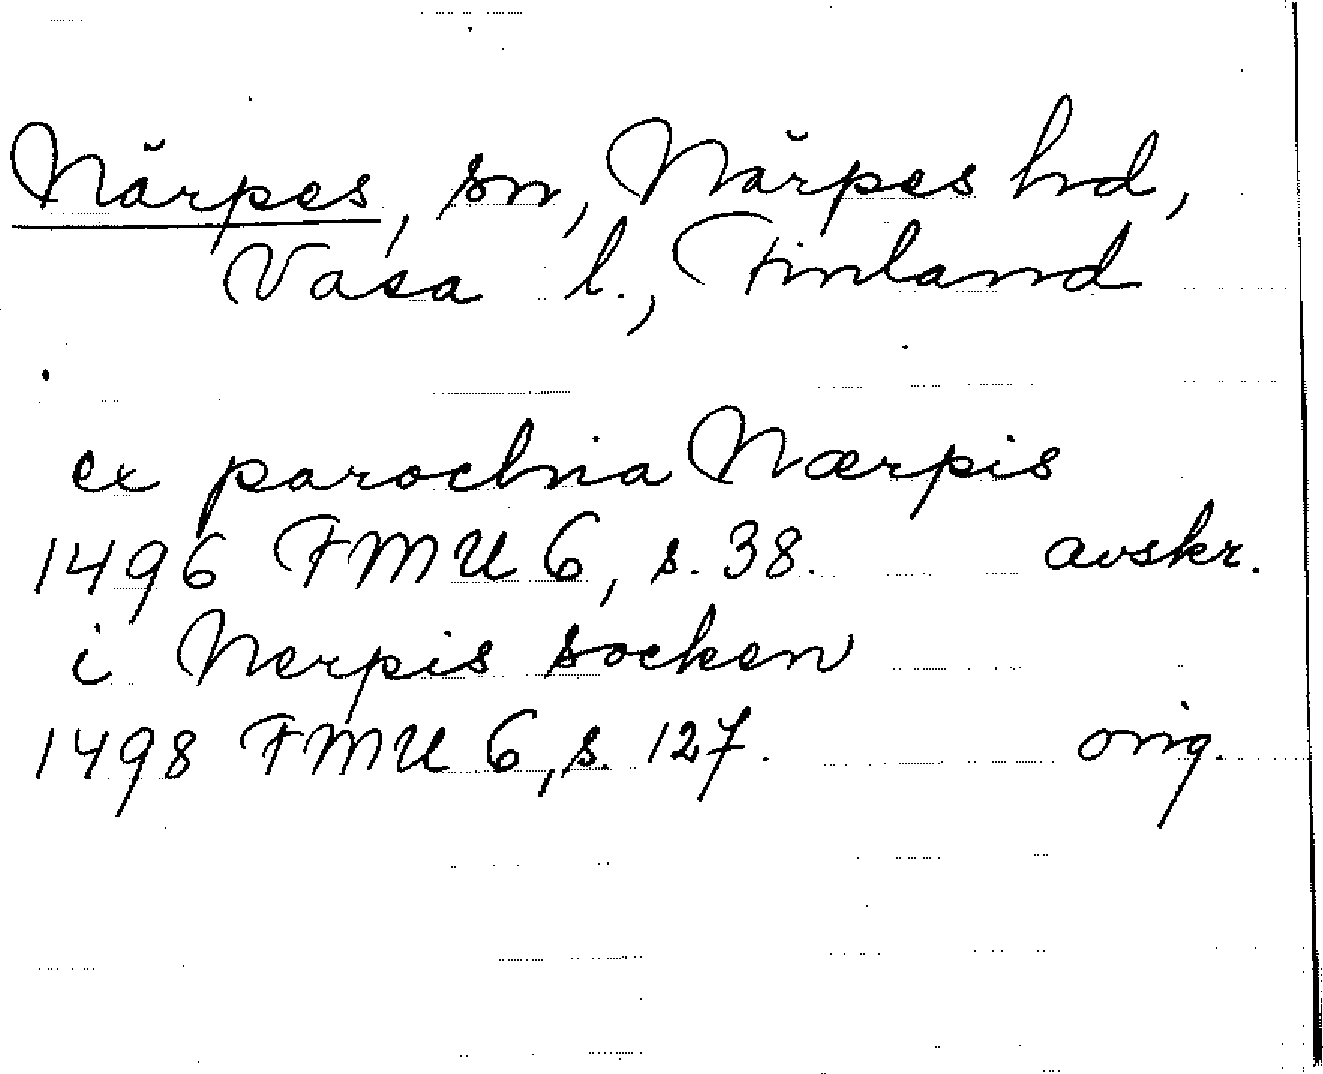 Närpes, sn, Närpes hd,
Vasa l., Finland
ex parochia Nærpis
1496 FMU 6, s. 38. avskr.
i Nerpis socken
1498 FMU 6, s. 127. orig.